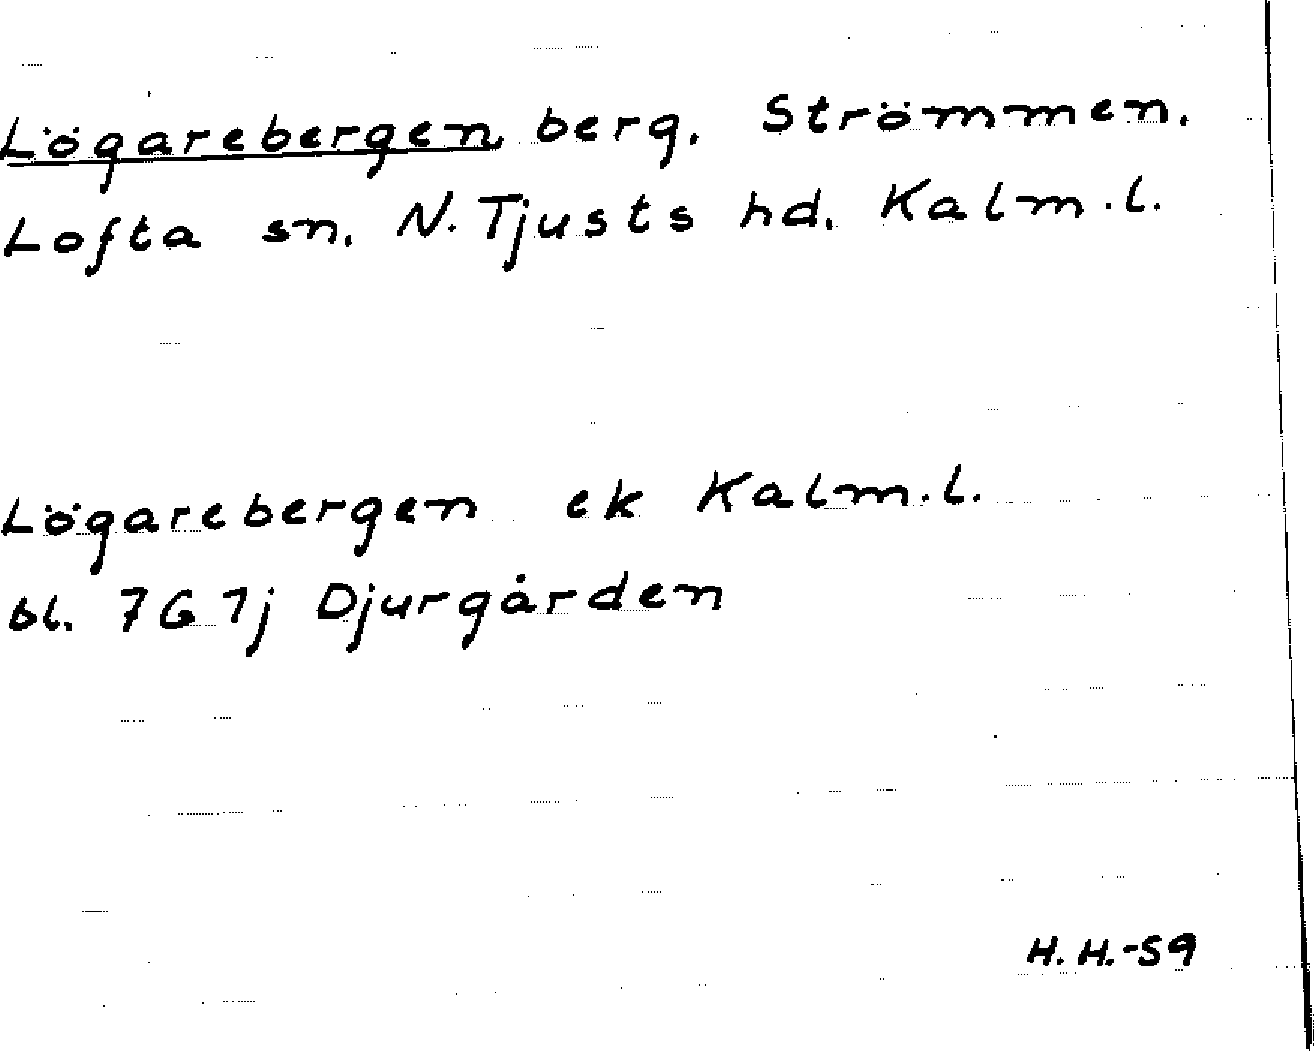 Lögarebergen, berg. Strömmen.
Lofta sn. N. Tjusts hd. Kalm.l.
Lögarebergen ek Kalm.l.
bl. 7G 7j Djurgården
H.H.-59